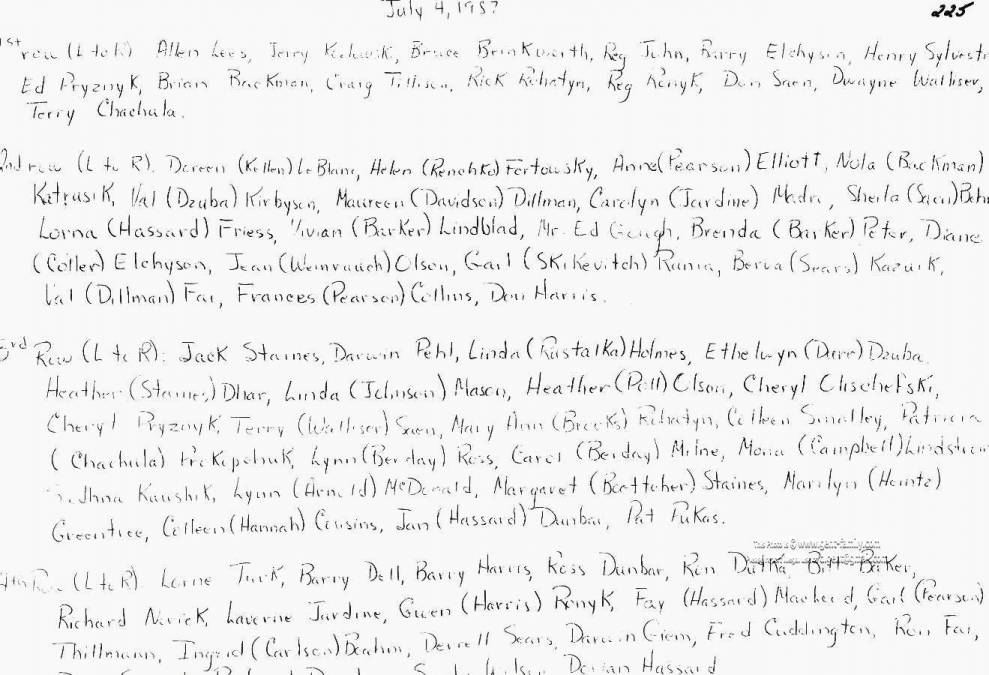 July 4, 1987
225
1st row (L to R). Allen Lees, Jerry Bruce Brinkworth, Reg John, Barry Elchyson, Henry Sylvestr
Ed Pryznyk, Brian Backman, Craig Rick Rohatyn, Reg Ronyk, Don Saen, Dwayne Walliser,
Terry Chachula.
2nd row (L to R). Doreen (Kellen) LeBlanc, Helen (Fertowsky, Anne (Pearson) Elliott, Nola (Backman)
Katrusik, Val (Dzuba) Kirbyson, Maureen (Davidson) Dillman, Carolyn (Jardine) Sheila (Saen)
Lorna (Hassard) Friess, Vivian (Barker) Lindblad, Mr. Ed Gough, Brenda (Barker) Peter, Diane
(Coller) Elchyson, Jean (Weinrauch) Olson, Gail (Skikevitch) Runia, Berva (Sears) Kazuik,
Val (Dillman) Fai, Frances (Pearson) Collins, Don Harris.
3rd Row (L to R): Jack Staines, Darwin Pehl, Linda (Rustalka) Holmes, Ethelwyn (Dzuba.
Heather (Staines) Dhar, Linda (Johnson) Mason, Heather (Poll) Olson, Cheryl
Cheryl Pryznyk, Terry (Walliser) Saen, Mary Ann (Brooks) Rohatyn, Colleen Smalley, Patricia
(Chachula) Prokopchuk, Lynn (Berday) Ross, Carol (Berday) Milne, Mona (Campbell) Lindstrom
Kaushik, Lynn (Arnold) McDonald, Margaret (Boettcher) Staines, Marilyn (Heintz)
Greentree, Colleen (Hannah) Cousins, Jan (Hassard) Dunbar, Pat Pukas.
4th Row (L to R). Lorne Turk, Barry Dell, Barry Harris, Ross Dunbar, Ron Dutka, Bill Barker,
Richard Novick, Laverne Jardine, Gwen (Harris) Ronyk, Fay (Hassard) MacLeod, Gail (Pearson)
Thillmann, Ingrid (Carlson) Beahm, Derrell Sears, Darwin Giem, Fred Cuddington, Ron Fai,
Dorian Hassard